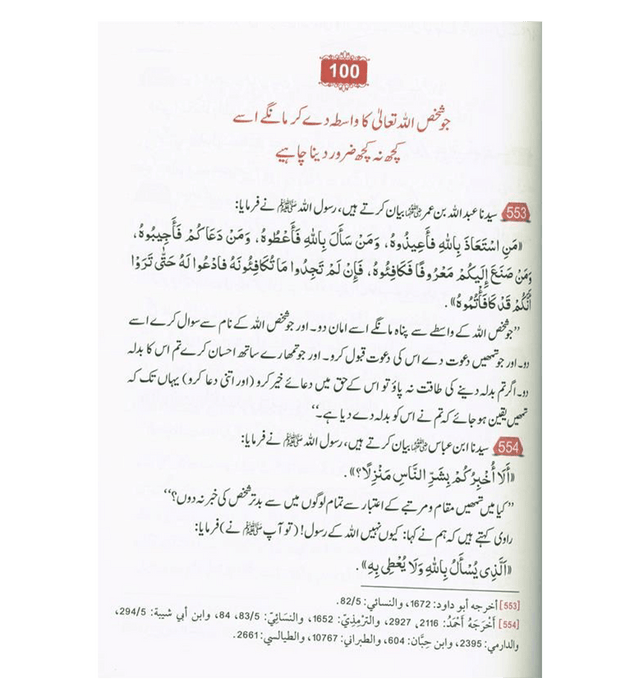 100
جو شخص اللہ تعالیٰ کا واسطہ دے کر مانگے اسے
کچھ نہ کچھ ضرور دینا چاہیے
553 سیدنا عبد اللہ بن عمر رضی اللہ عنہما بیان کرتے ہیں، رسول اللہ ﷺ نے فرمایا:
«مَنِ اسْتَعَاذَ بِاللّٰهِ فَأَعِيذُوهُ، وَمَنْ سَأَلَ بِاللّٰهِ فَأَعْطُوهُ، وَمَنْ دَعَاكُمْ فَأَجِيبُوهُ،
وَمَنْ صَنَعَ إِلَيْكُمْ مَعْرُوفًا فَكَافِئُوهُ، فَإِنْ لَمْ تَجِدُوا مَا تُكَافِئُونَهُ فَادْعُوا لَهُ حَتّٰى تَرَوْا
أَنَّكُمْ قَدْ كَافَأْتُمُوهُ».
”جو شخص اللہ کے واسطے سے پناہ مانگے اسے امان دو۔ اور جو شخص اللہ کے نام سے سوال کرے اسے
دو۔ اور جو تمھیں دعوت دے اس کی دعوت قبول کرو۔ اور جو تمھارے ساتھ احسان کرے تم اس کا بدلہ
دو۔ اگر تم بدلہ دینے کی طاقت نہ پاؤ تو اس کے حق میں دعائے خیر کرو (اور اتنی دعا کرو) یہاں تک کہ
تمھیں یقین ہو جائے کہ تم نے اس کو بدلہ دے دیا ہے۔“
554 سیدنا ابن عباس رضی اللہ عنہما بیان کرتے ہیں، رسول اللہ ﷺ نے فرمایا:
«أَلَا أُخْبِرُكُمْ بِشَرِّ النَّاسِ مَنْزِلًا؟».
”کیا میں تمھیں مقام و مرتبے کے اعتبار سے تمام لوگوں میں سے بدتر شخص کی خبر نہ دوں؟“
راوی کہتے ہیں کہ ہم نے کہا: کیوں نہیں اللہ کے رسول! (تو آپ ﷺ نے) فرمایا:
«اَلَّذِي يُسْأَلُ بِاللّٰهِ وَلَا يُعْطِي بِهِ».
[553] أخرجه أبو داود: 1672، والنسائي: 82/5.
[554] أَخْرَجَهُ أَحْمَدُ: 2116، 2927، والتِّرْمِذِيّ: 1652، والنَّسَائِيّ: 83/5، 84، وابن أبي شيبة: 294/5،
والدارمي: 2395، وابن حِبَّان: 604، والطبراني: 10767، والطيالسي: 2661.